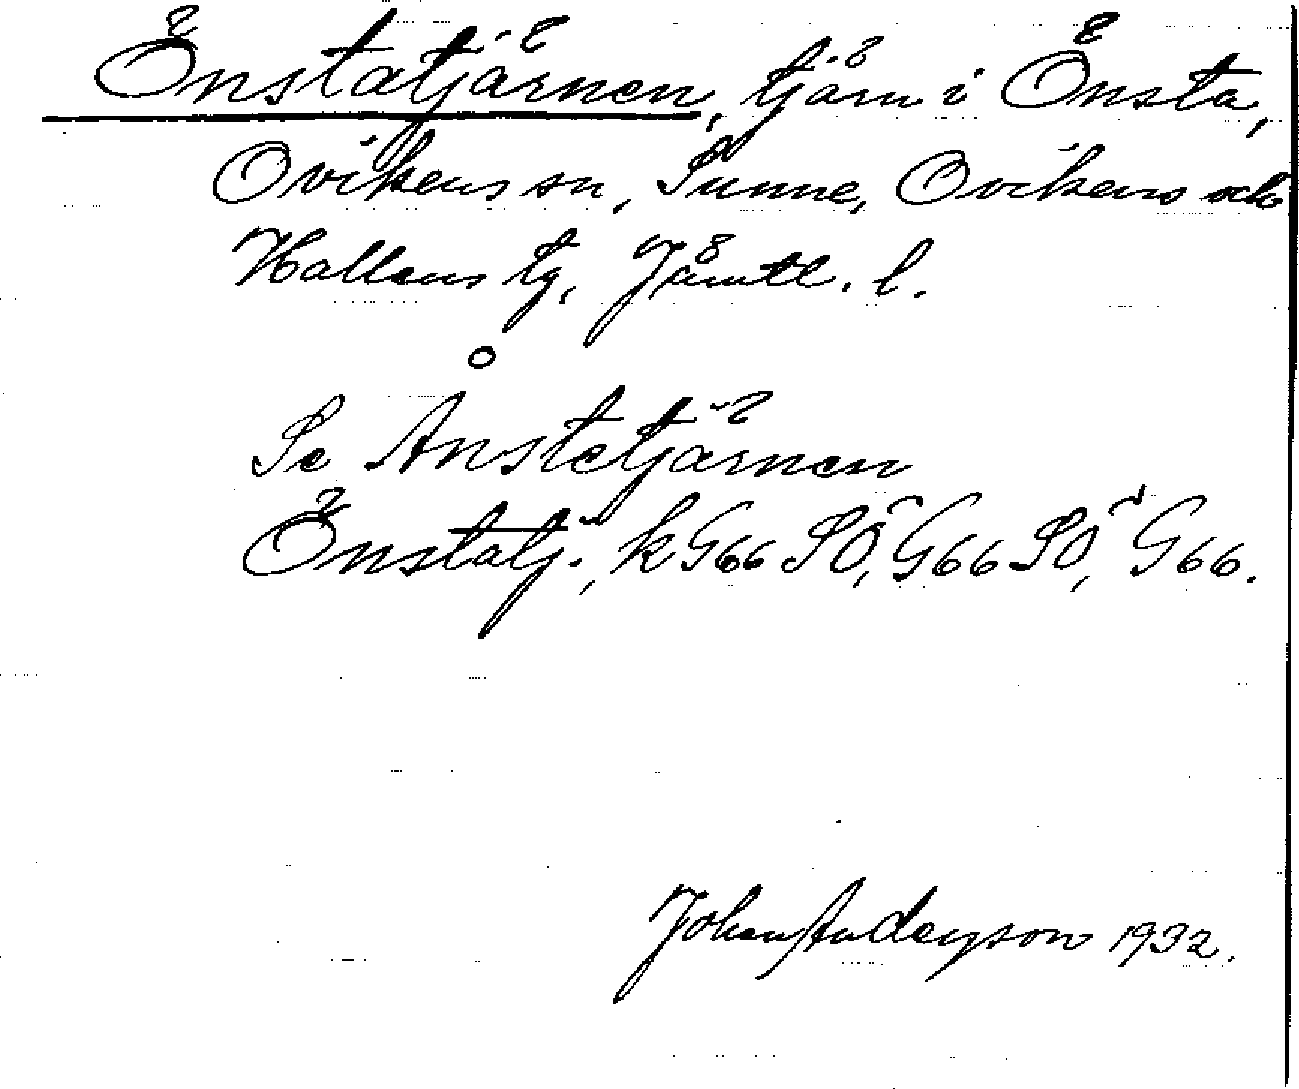 Önstatjärnen, tjärn i Önsta,
Ovikens sn, Sunne, Ovikens och
Hallens tg, Jämtl. l.
Se Ånstetjärnen
Önstatj., k G66 SÖ, G66 SO, G66.
Johan Anderson 1932.